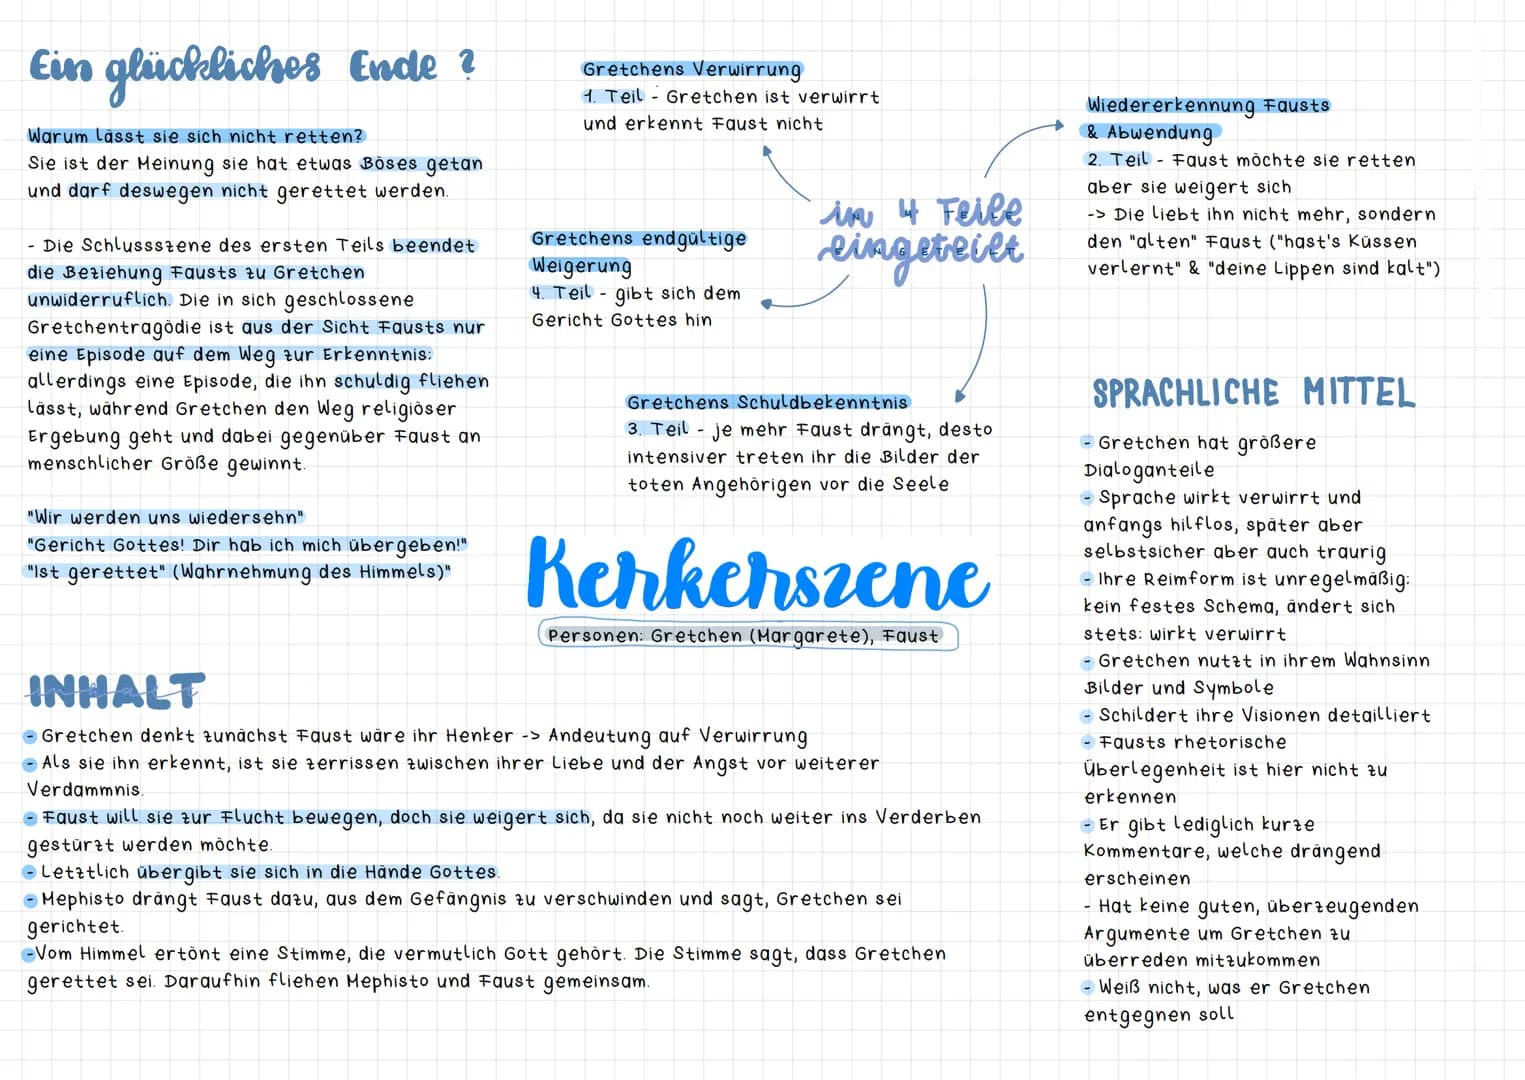 Ein glückliches Ende ?
Warum lässt sie sich nicht retten?
Sie ist der Meinung sie hat etwas Böses getan
und darf deswegen nicht gerettet werden.
- Die Schlussszene des ersten Teils beendet
die Beziehung Fausts zu Gretchen
unwiderruflich. Die in sich geschlossene
Gretchentragödie ist aus der Sicht Fausts nur
eine Episode auf dem Weg zur Erkenntnis:
allerdings eine Episode, die ihn schuldig fliehen
lässt, während Gretchen den Weg religiöser
Ergebung geht und dabei gegenüber Faust an
menschlicher Größe gewinnt.
"Wir werden uns wiedersehn"
"Gericht Gottes! Dir hab ich mich übergeben!"
"Ist gerettet" (Wahrnehmung des Himmels)"
Gretchens Verwirrung
1. Teil - Gretchen ist verwirrt
und erkennt Faust nicht
in 4 Teile
eingeteilt
Wiedererkennung Fausts
& Abwendung
2. Teil - Faust möchte sie retten
aber sie weigert sich
-> Die liebt ihn nicht mehr, sondern
den "alten" Faust ("hast's Küssen
verlernt" & "deine Lippen sind kalt")
Gretchens endgültige
Weigerung
4. Teil - gibt sich dem
Gericht Gottes hin
Gretchens Schuldbekenntnis
3. Teil - je mehr Faust drängt, desto
intensiver treten ihr die Bilder der
toten Angehörigen vor die Seele
Kerkerszene
Personen: Gretchen (Margarete), Faust
INHALT
- Gretchen denkt zunächst Faust wäre ihr Henker -> Andeutung auf Verwirrung
- Als sie ihn erkennt, ist sie zerrissen zwischen ihrer Liebe und der Angst vor weiterer
Verdammnis.
- Faust will sie zur Flucht bewegen, doch sie weigert sich, da sie nicht noch weiter ins Verderben
gestürzt werden möchte.
- Letztlich übergibt sie sich in die Hände Gottes.
- Mephisto drängt Faust dazu, aus dem Gefängnis zu verschwinden und sagt, Gretchen sei
gerichtet.
-Vom Himmel ertönt eine Stimme, die vermutlich Gott gehört. Die Stimme sagt, dass Gretchen
gerettet sei. Daraufhin fliehen Mephisto und Faust gemeinsam.
SPRACHLICHE MITTEL
- Gretchen hat größere
Dialoganteile
- Sprache wirkt verwirrt und
anfangs hilflos, später aber
selbstsicher aber auch traurig
- Ihre Reimform ist unregelmäßig:
kein festes Schema, ändert sich
stets: wirkt verwirrt
- Gretchen nutzt in ihrem Wahnsinn
Bilder und Symbole
- Schildert ihre Visionen detailliert
- Fausts rhetorische
Überlegenheit ist hier nicht zu
erkennen
- Er gibt lediglich kurze
Kommentare, welche drängend
erscheinen
- Hat keine guten, überzeugenden
Argumente um Gretchen zu
überreden mitzukommen
- Weiß nicht, was er Gretchen
entgegnen soll